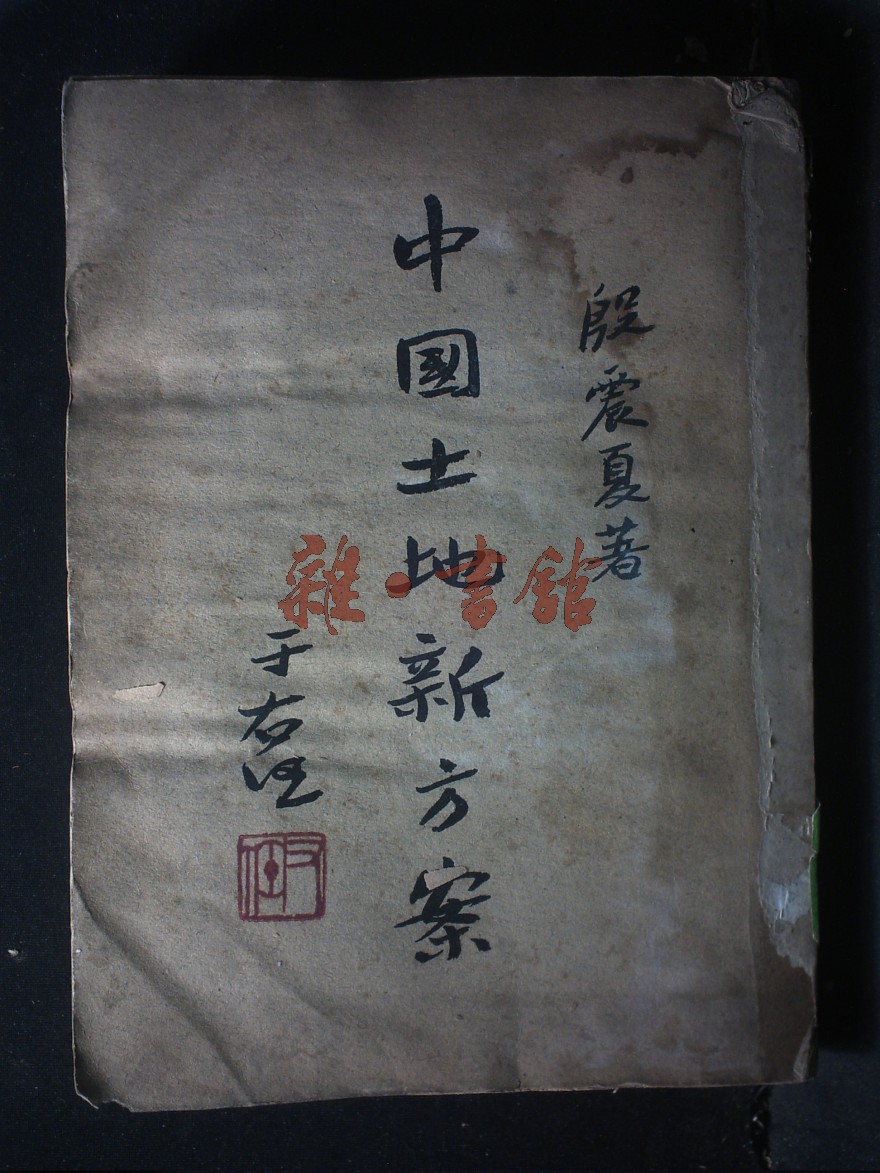 殷震夏著
中國土地新方案
于右任
右任
雜·書館